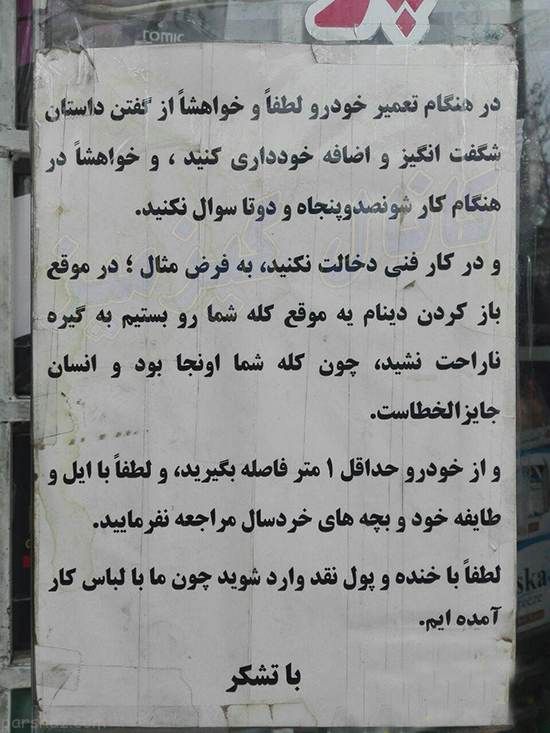 romic
در هنگام تعمیر خودرو لطفاً و خواهشاً از گفتن داستان
شگفت انگیز و اضافه خودداری کنید ، و خواهشاً در
هنگام کار شونصدوپنجاه و دوتا سوال نکنید.
و در کار فنی دخالت نکنید، به فرض مثال ؛ در موقع
باز کردن دینام یه موقع کله شما رو بستیم به گیره
ناراحت نشید، چون کله شما اونجا بود و انسان
جایزالخطاست.
و از خودرو حداقل ۱ متر فاصله بگیرید، و لطفاً با ایل و
طایفه خود و بچه های خردسال مراجعه نفرمایید.
لطفاً با خنده و پول نقد وارد شوید چون ما با لباس کار
آمده ایم.
با تشکر
ska